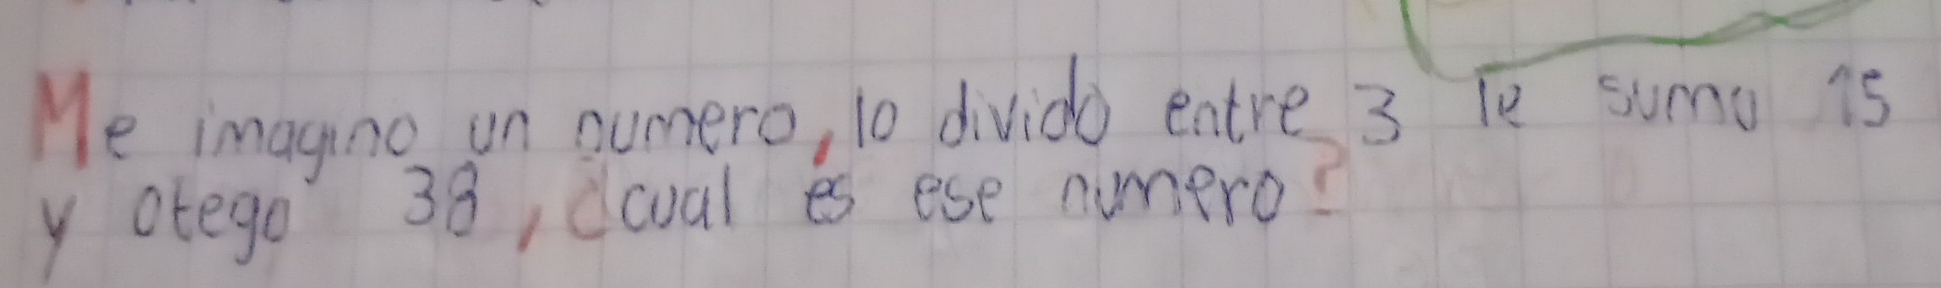 Me imagino un numero, lo divido entre 3 le sumo 15
y otego 38, ¿cual es ese numero?